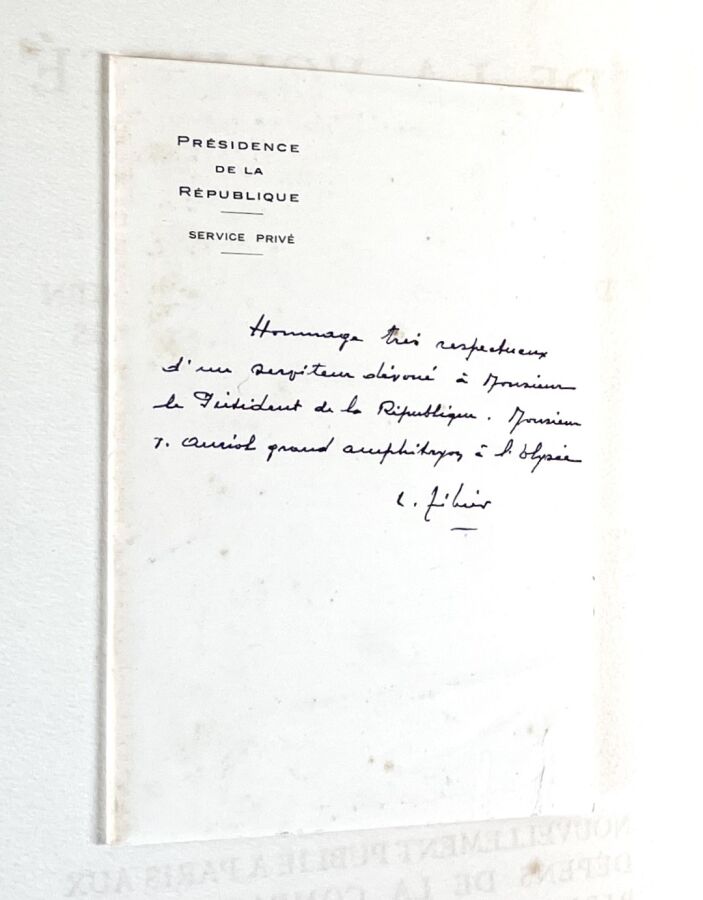 PRÉSIDENCE
DE LA
RÉPUBLIQUE
SERVICE PRIVÉ
Hommage très respectueux
d'un serviteur dévoué à Monsieur
le Président de la République. Monsieur
V. Auriol grand amphitryon à l'Elysée
L.
NOUVELLEMENT PUBLIÉ A PARIS AUX
DÉPENS DE LA